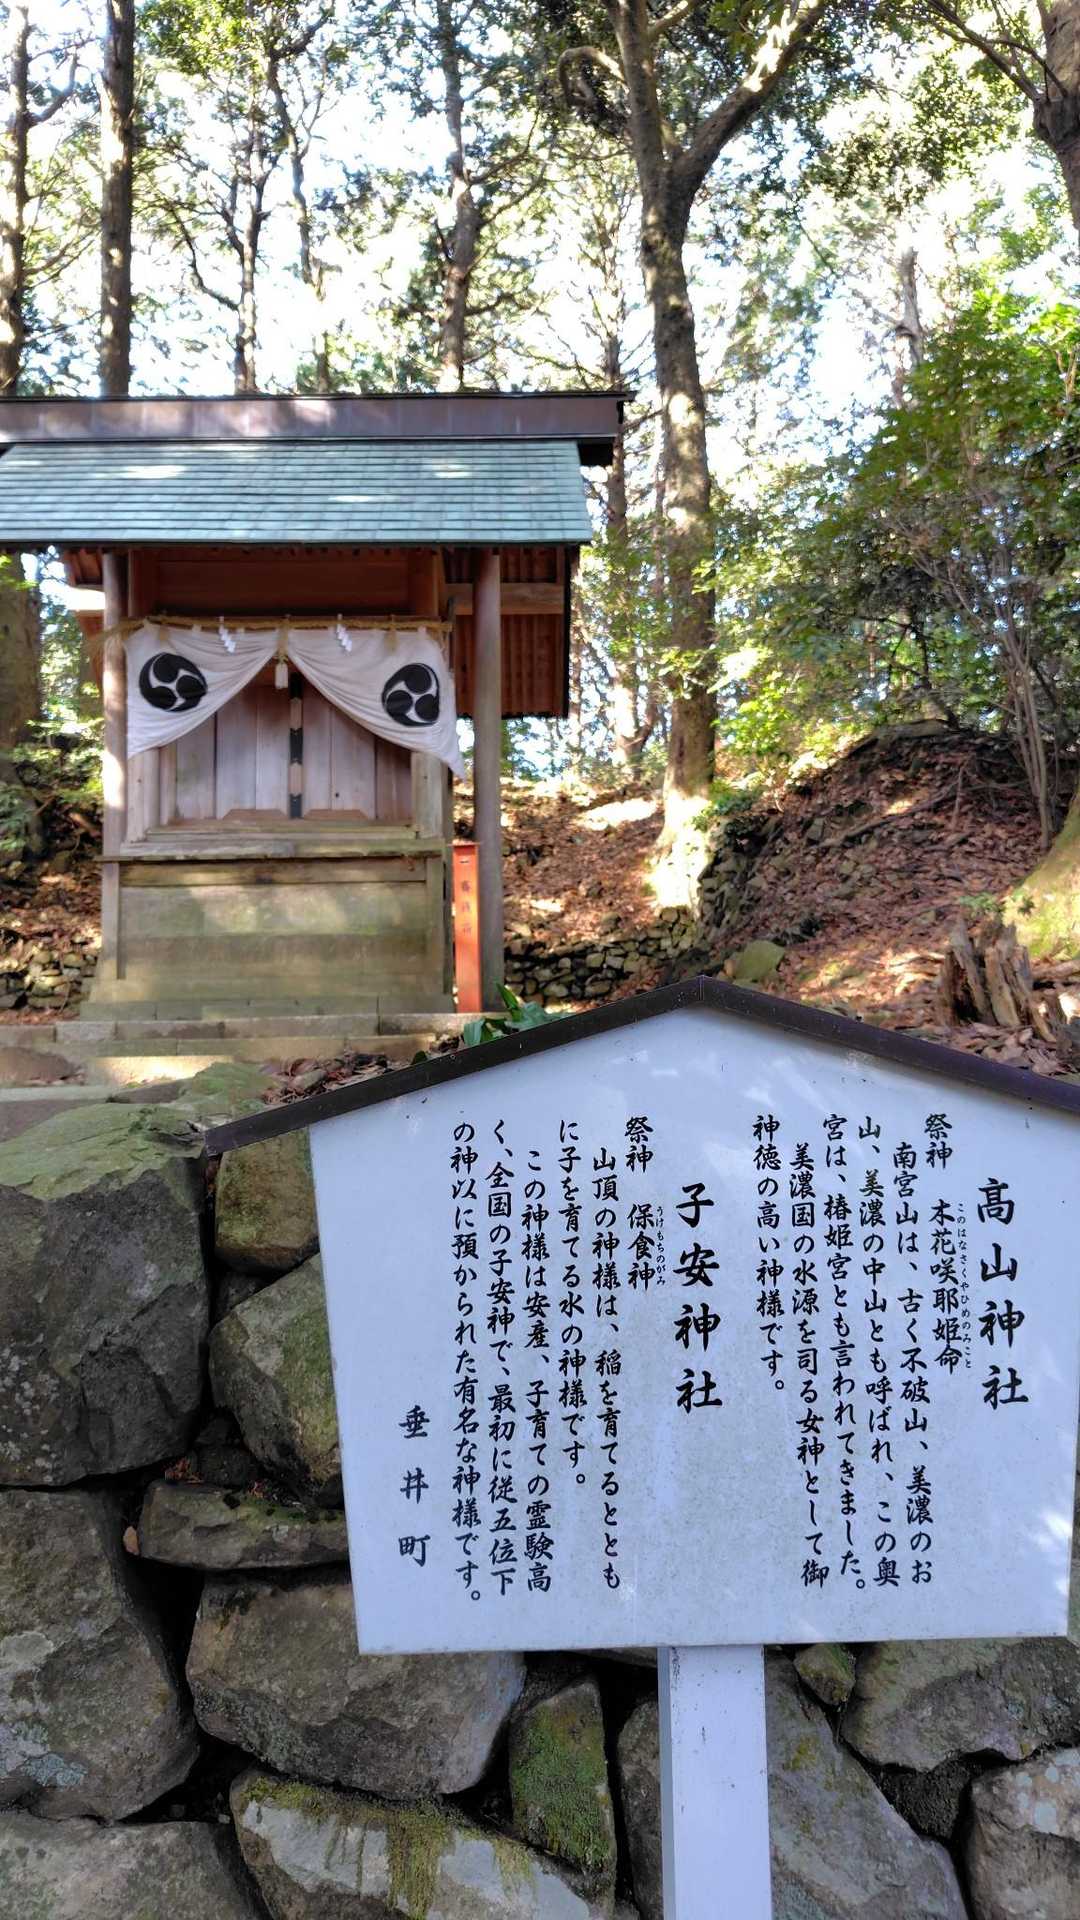 高山神社
祭神　木花咲耶姫命
このはなさくやひめのみこと
南宮山は、古く不破山、美濃のお
山、美濃の中山とも呼ばれ、この奥
宮は、椿姫宮とも言われてきました。
美濃国の水源を司る女神として御
神徳の高い神様です。
子安神社
祭神　保食神
うけもちのがみ
山頂の神様は、稲を育てるととも
に子を育てる水の神様です。
この神様は安産、子育ての霊験高
く、全国の子安神で、最初に従五位下
の神以に預かられた有名な神様です。
垂井町